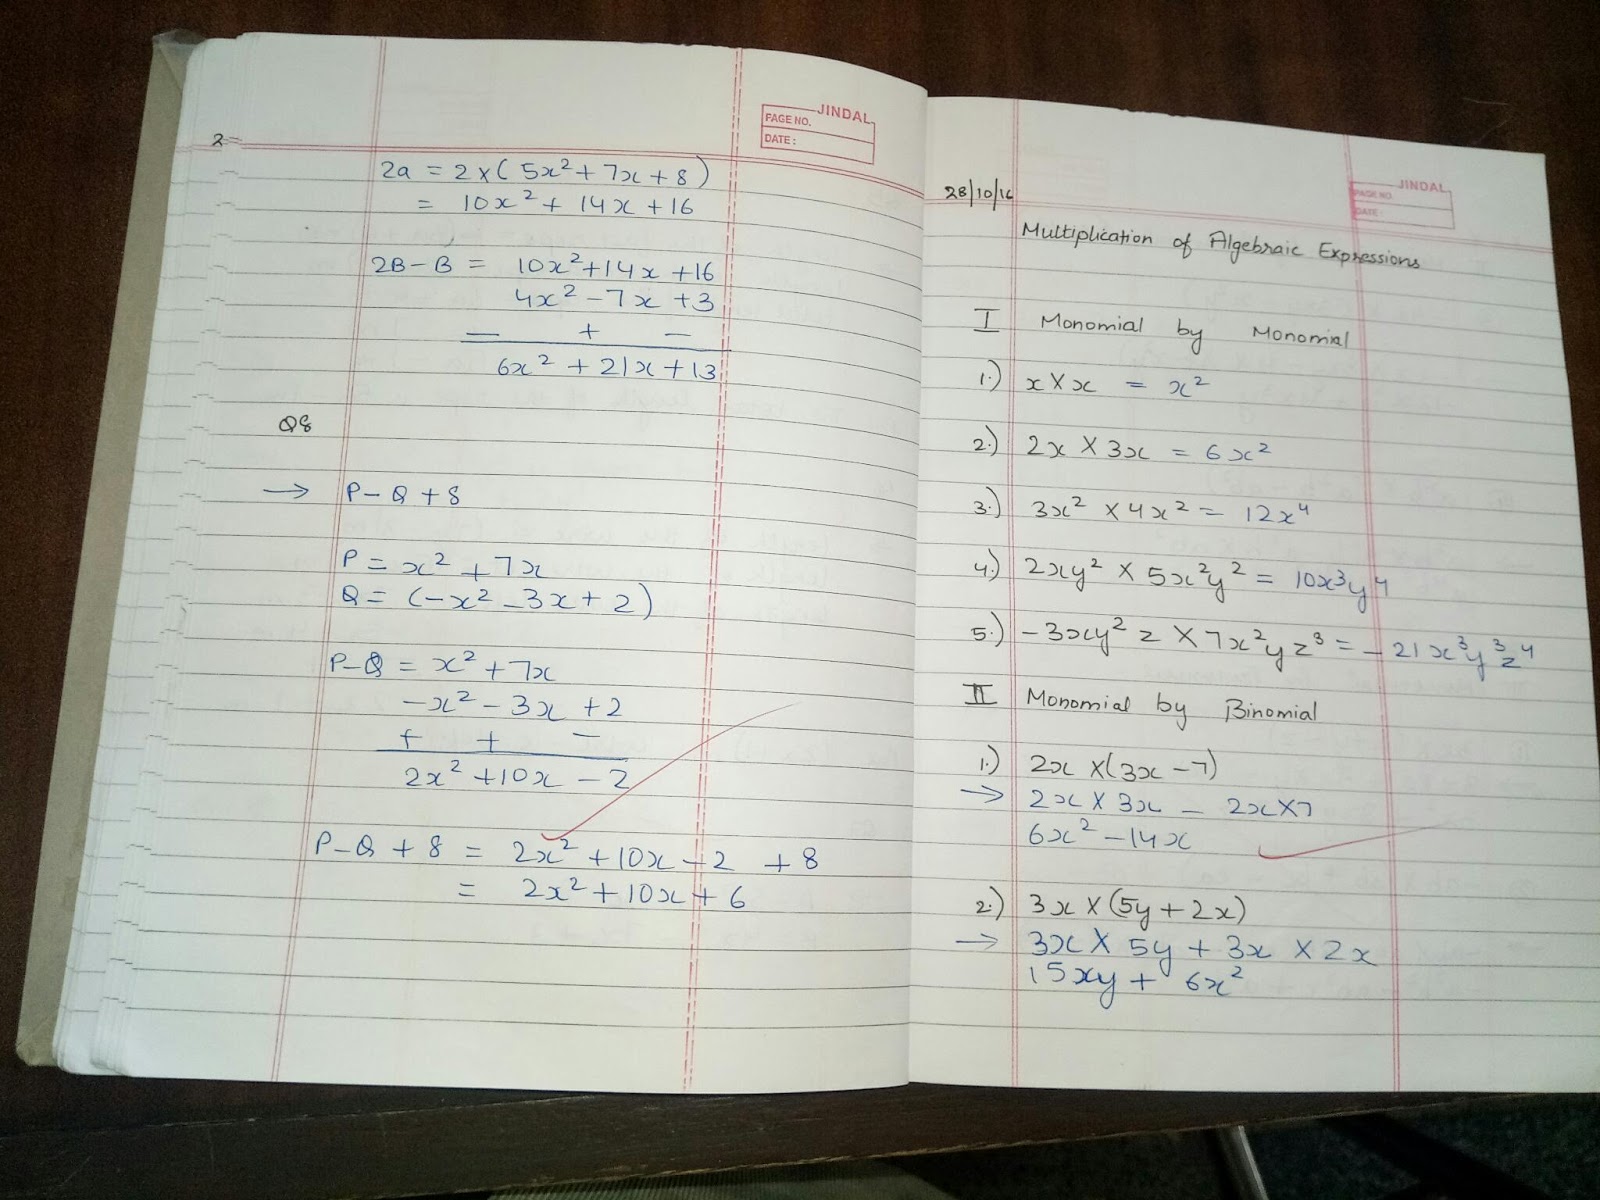 JINDAL
PAGE NO.
DATE :
2
2a = 2 x ( 5x² + 7x + 8 )
= 10x² + 14x + 16
2B - B = 10x² + 14x + 16
4x² - 7x + 3
— + —
6x² + 21x + 13
Q8
→ P - Q + 8
P = x² + 7x
Q = (-x² - 3x + 2)
P - Q = x² + 7x
-x² - 3x + 2
+ + —
2x² + 10x - 2
P - Q + 8 = 2x² + 10x - 2 + 8
= 2x² + 10x + 6
JINDAL
PAGE NO.
DATE :
28/10/16
Multiplication of Algebraic Expressions
I Monomial by Monomial
1.) x × x = x²
2.) 2x × 3x = 6x²
3.) 3x² × 4x² = 12x⁴
4.) 2xy² × 5x²y² = 10x³y⁴
5.) -3xy²z × 7x²yz³ = -21x³y³z⁴
II Monomial by Binomial
1.) 2x × (3x - 7)
→ 2x × 3x - 2x × 7
6x² - 14x
2.) 3x × (5y + 2x)
→ 3x × 5y + 3x × 2x
15xy + 6x²